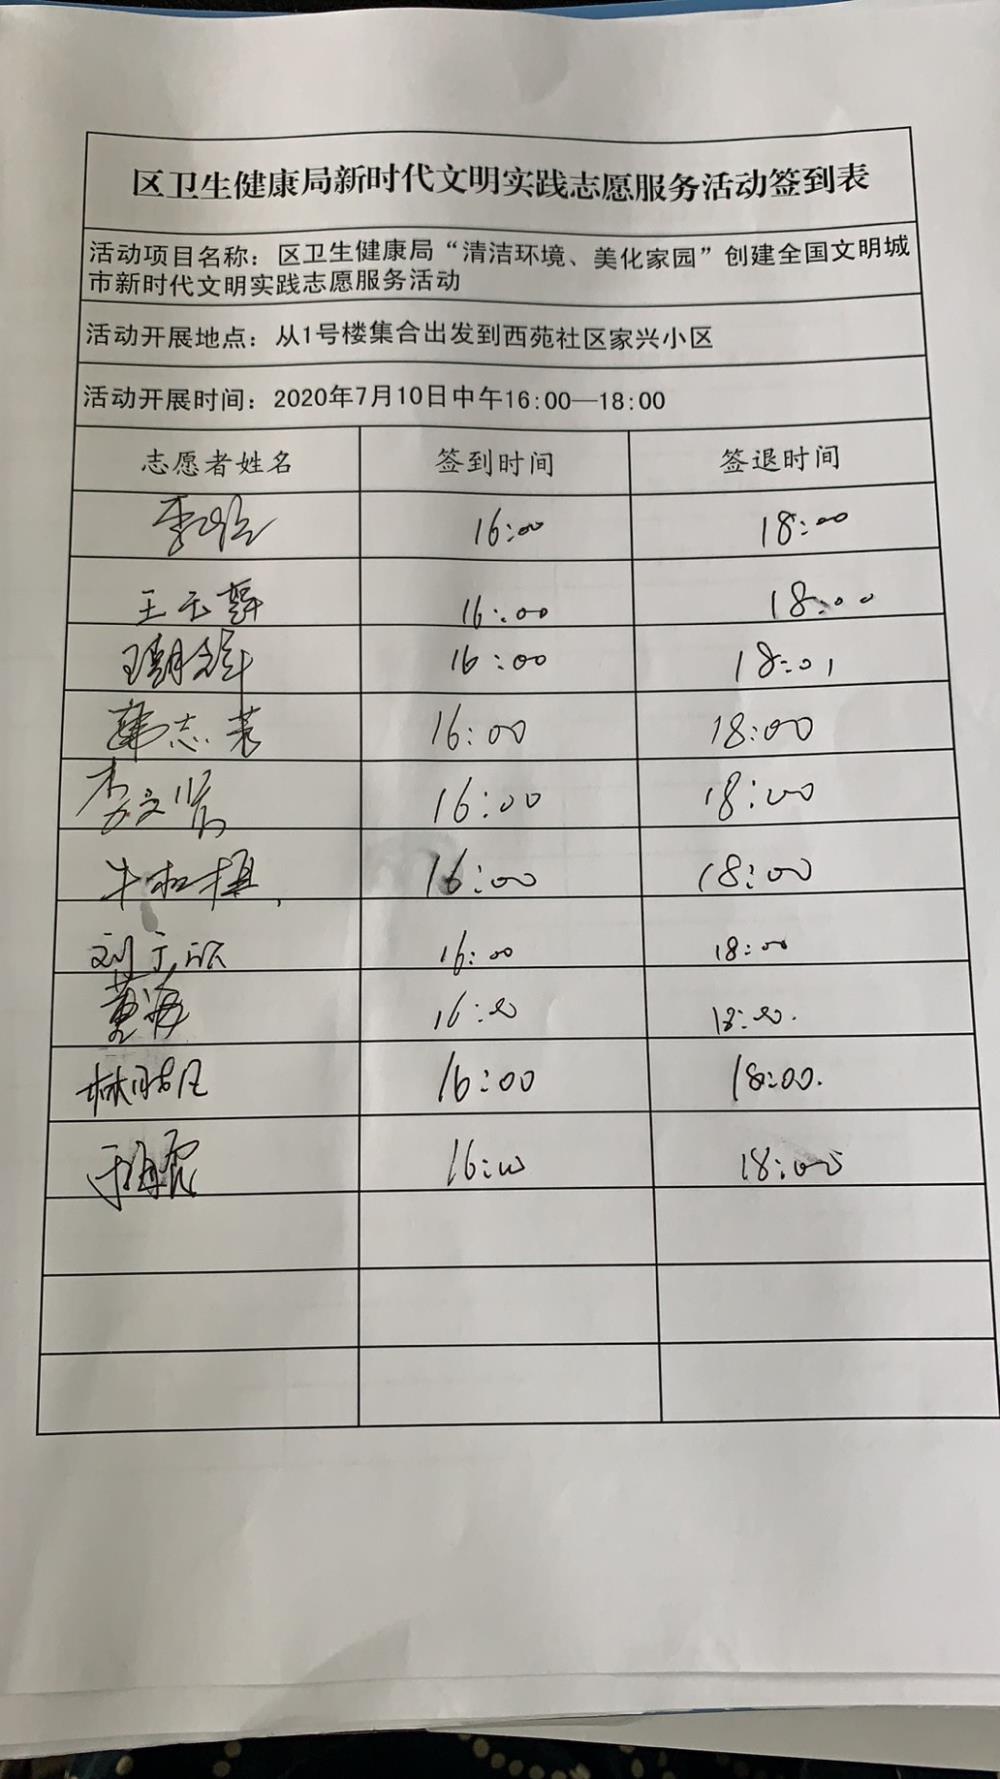 区卫生健康局新时代文明实践志愿服务活动签到表
活动项目名称：区卫生健康局“清洁环境、美化家园”创建全国文明城
市新时代文明实践志愿服务活动
活动开展地点：从1号楼集合出发到西苑社区家兴小区
活动开展时间：2020年7月10日中午16:00—18:00
志愿者姓名 签到时间 签退时间
李 16:00 18:00
王 16:00 18:00
16:00 18:01
韩志芳 16:00 18:00
李文 16:00 18:00
牛 16:00 18:00
刘 16:00 18:00
黄海 16:00 18:00.
林 16:00 18:00.
16:00 18:00